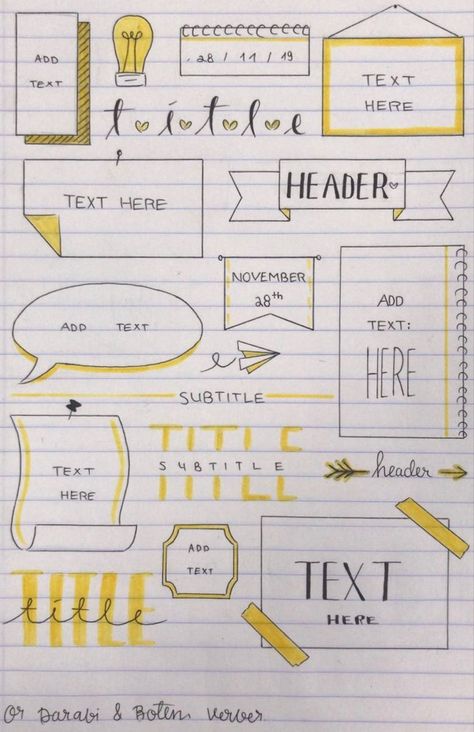 ADD
TEXT
28 / 11 / 19
TEXT
HERE
title
TEXT HERE
HEADER
NOVEMBER
28th
ADD
TEXT:
HERE
ADD TEXT
SUBTITLE
TEXT
HERE
TITLE
SUBTITLE
header
ADD
TEXT
TEXT
HERE
TITLE
title
Or Darabi & Boten Verver